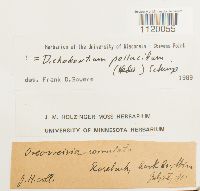 1120055
Herbarium of the University of Wisconsin - Stevens Point
! = Dichodontium pellucidum
(Hedw.) Schimp.
det. Frank D. Bowers 1989
J. M. HOLZINGER MOSS HERBARIUM
UNIVERSITY OF MINNESOTA HERBARIUM
Oreoweisia serrulata